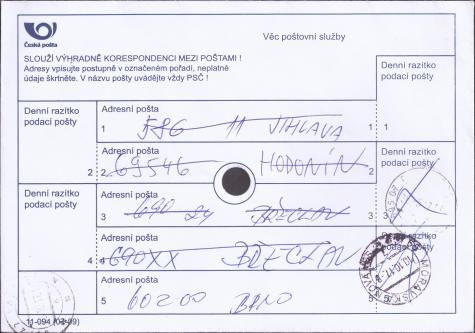 Česká pošta
Věc poštovní služby
SLOUŽÍ VÝHRADNĚ KORESPONDENCI MEZI POŠTAMI !
Adresy vpisujte postupně v označeném pořadí, neplatné
údaje škrtněte. V názvu pošty uvádějte vždy PSČ !
Denní razítko
podací pošty
Adresní pošta
1 586 11 JIHLAVA 1
Denní razítko
podací pošty
Adresní pošta
2 2 69546 HODONÍN 2
Denní razítko
podací pošty
Adresní pošta
3 690 BŘECLAV 3
Denní razítko
podací pošty
Adresní pošta
4 4 690XX BŘECLAV
Adresní pošta
5 602 00 BRNO 5
11-094 (02-09)